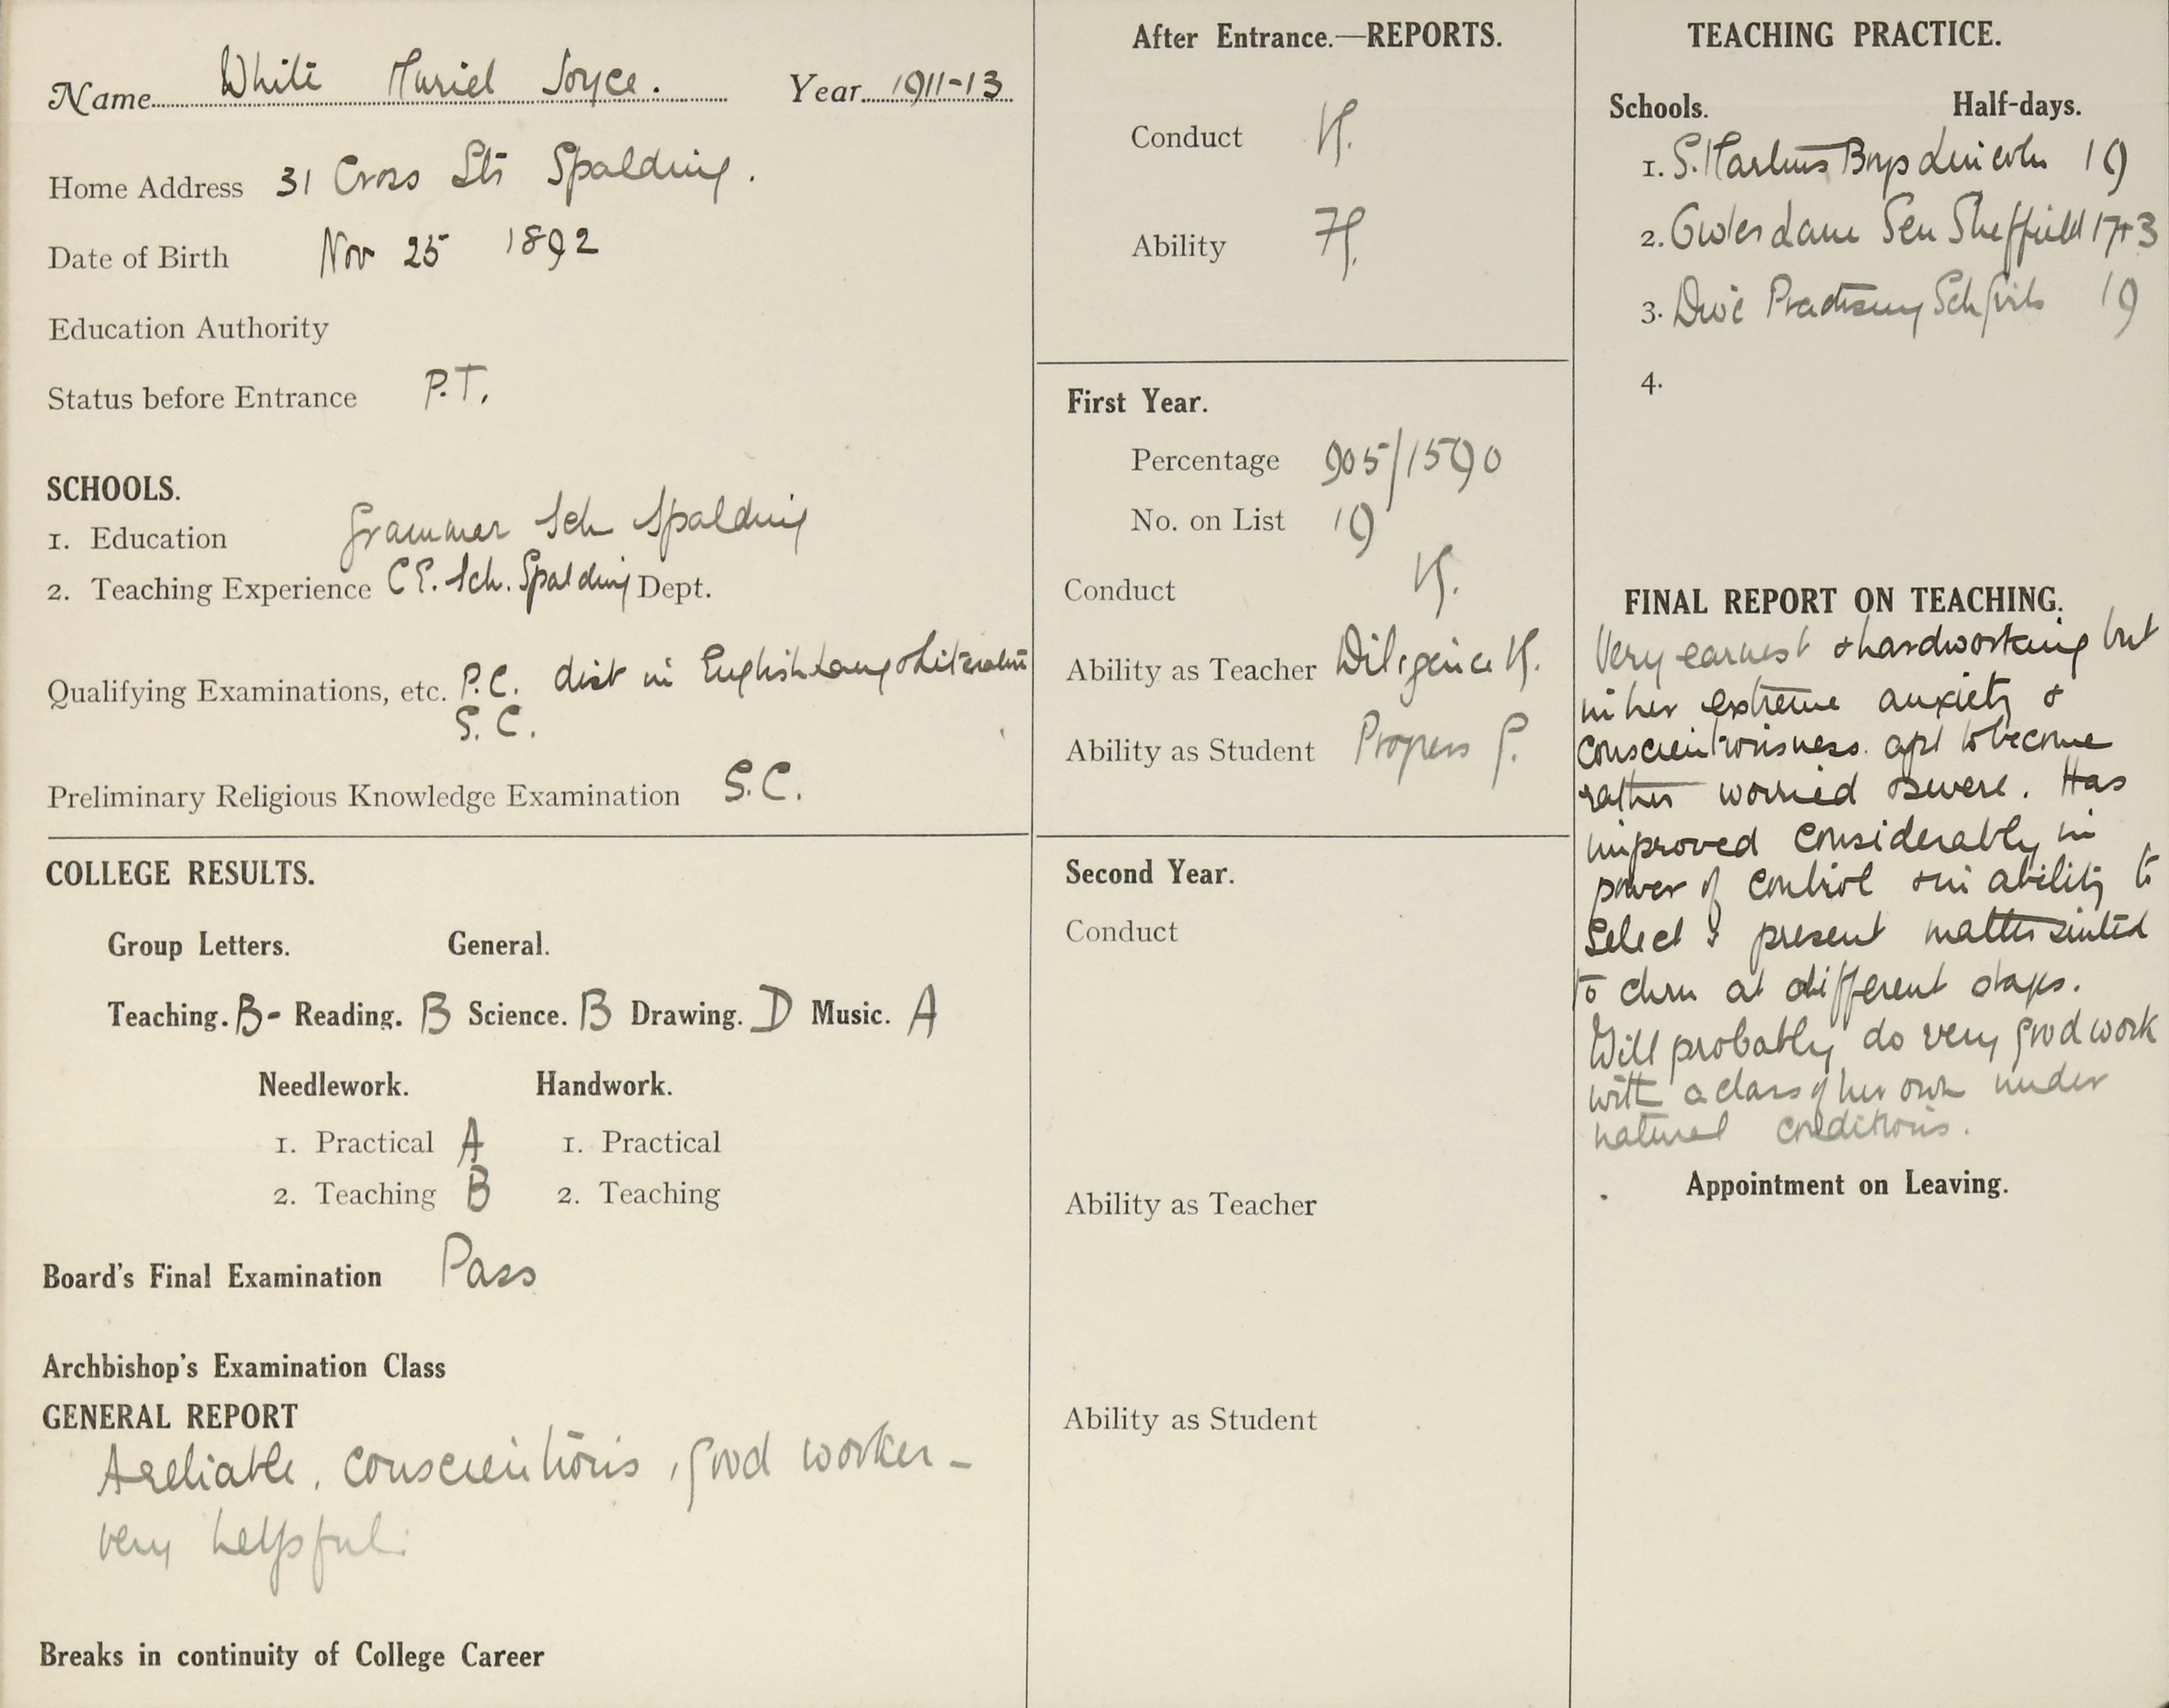 Name White Muriel Joyce. Year 1911-13
Home Address 31 Cross Str Spalding.
Date of Birth Nov 25 1892
Education Authority
Status before Entrance P.T.
SCHOOLS.
1. Education Grammar Sch Spalding
2. Teaching Experience C E. Sch. Spalding Dept.
Qualifying Examinations, etc. P.C. dist in English Lang & Literature
S.C.
Preliminary Religious Knowledge Examination S.C.
COLLEGE RESULTS.
Group Letters. General.
Teaching. B- Reading. B Science. B Drawing. D Music. A
Needlework. Handwork.
1. Practical A 1. Practical
2. Teaching B 2. Teaching
Board's Final Examination Pass
Archbishop's Examination Class
GENERAL REPORT
A reliable, conscientious, good worker -
very helpful.
Breaks in continuity of College Career
After Entrance.—REPORTS.
Conduct
Ability
First Year.
Percentage 905/1590
No. on List 19
Conduct
Ability as Teacher Diligence
Ability as Student Progress G.
Second Year.
Conduct
Ability as Teacher
Ability as Student
TEACHING PRACTICE.
Schools. Half-days.
1. S. Martins Boys Lincoln 19
2. Lane Sen Sheffield 17+3
3. Practising Sch Girls 19
4.
FINAL REPORT ON TEACHING.
Very earnest & hardworking but
in her extreme anxiety &
conscientiousness. apt to become
rather worried & severe. Has
improved considerably in
power of control & in ability to
select & present matter suited
to chrn at different stages.
Will probably do very good work
with a class of her own under
natural conditions.
Appointment on Leaving.